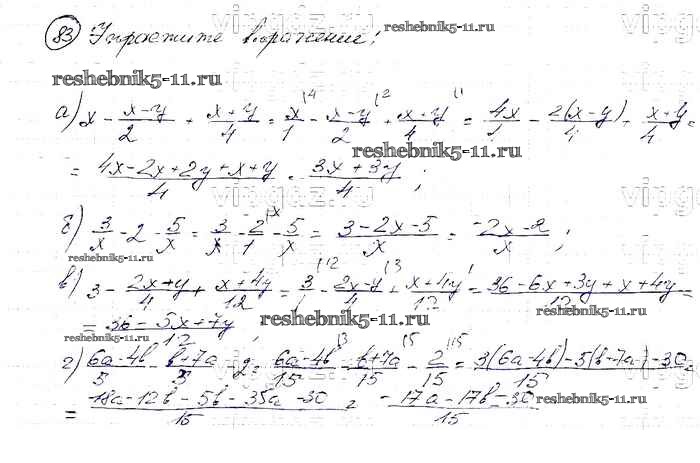 83 Упростите выражение:
reshebnik5-11.ru
reshebnik5-11.ru
а) x - (x-y)/2 + (x+y)/4 = x/1 |4 - (x-y)/2 |2 + (x+y)/4 |1 = 4x/4 - 2(x-y)/4 + (x+y)/4 =
reshebnik5-11.ru
= (4x-2x+2y+x+y)/4 = (3x+3y)/4 ;
б) 3/x - 2 - 5/x = 3/x - 2/1 |x - 5/x = (3-2x-5)/x = (-2x-2)/x ;
reshebnik5-11.ru
в) 3 - (2x+y)/4 + (x+4y)/12 = 3/1 |12 - (2x-y)/4 |3 + (x+4y)/12 |1 = (36-6x+3y+x+4y)/12 =
= (36-5x+7y)/12 ;
reshebnik5-11.ru
reshebnik5-11.ru
г) (6a-4b)/5 - (b+7a)/3 - 2 = (6a-4b)/15 |3 - (b+7a)/15 |5 - 2/15 |15 = (3(6a-4b)-5(b+7a)-30)/15 =
= (18a-12b-5b-35a-30)/15 = (-17a-17b-30)/15
reshebnik5-11.ru